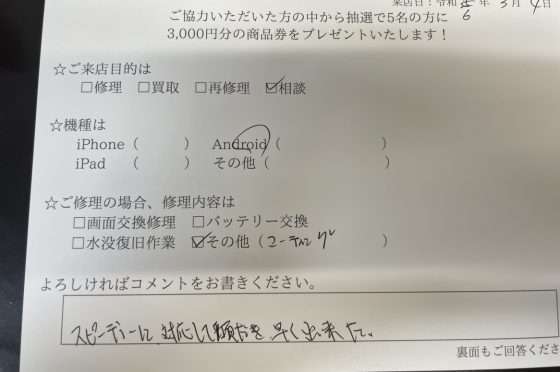 来店日：令和 6 年 3 月 4 日
ご協力いただいた方の中から抽選で5名の方に
3,000円分の商品券をプレゼントいたします！
☆ご来店目的は
□修理 □買取 □再修理 ☑相談
☆機種は
iPhone（ ） Android（ ）
iPad （ ） その他（ ）
☆ご修理の場合、修理内容は
□画面交換修理 □バッテリー交換
□水没復旧作業 ☑その他（コーティング ）
よろしければコメントをお書きください。
スピーディーに対応して頂き 早く出来た。
裏面もご回答くださ